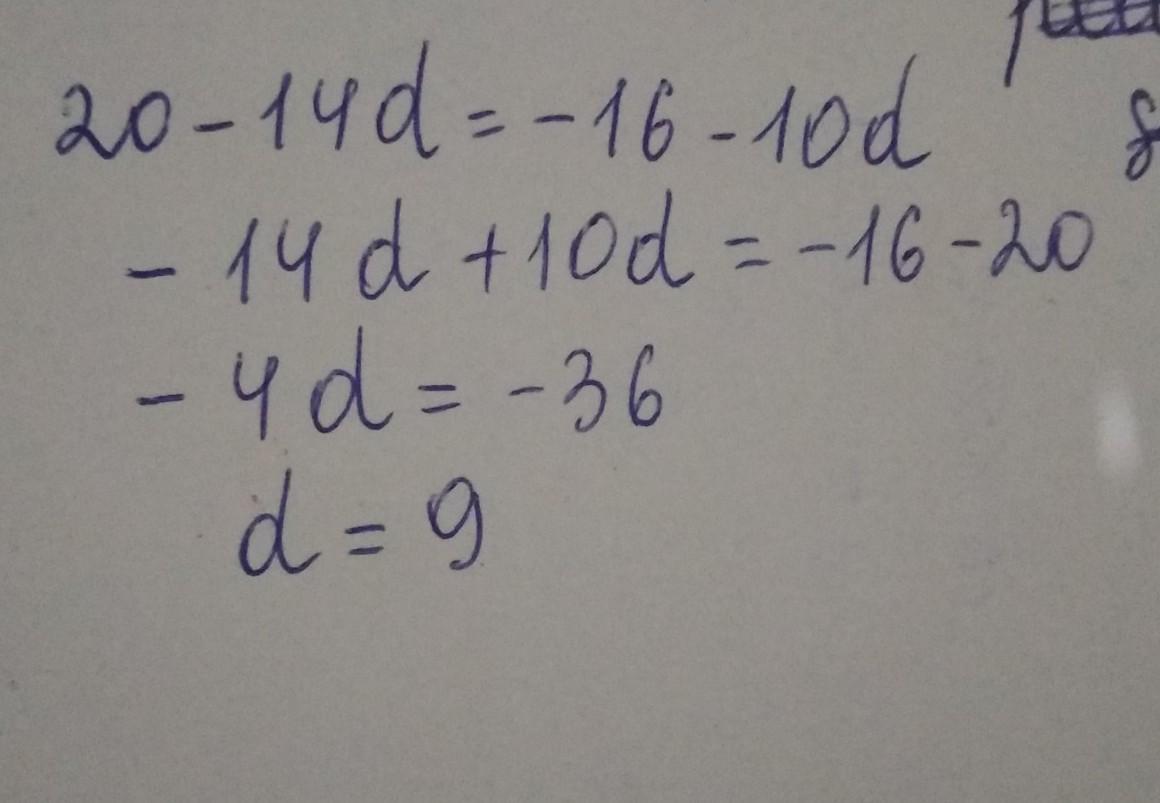 20 - 14d = -16 - 10d
- 14d + 10d = -16 - 20
- 4d = -36
d = 9